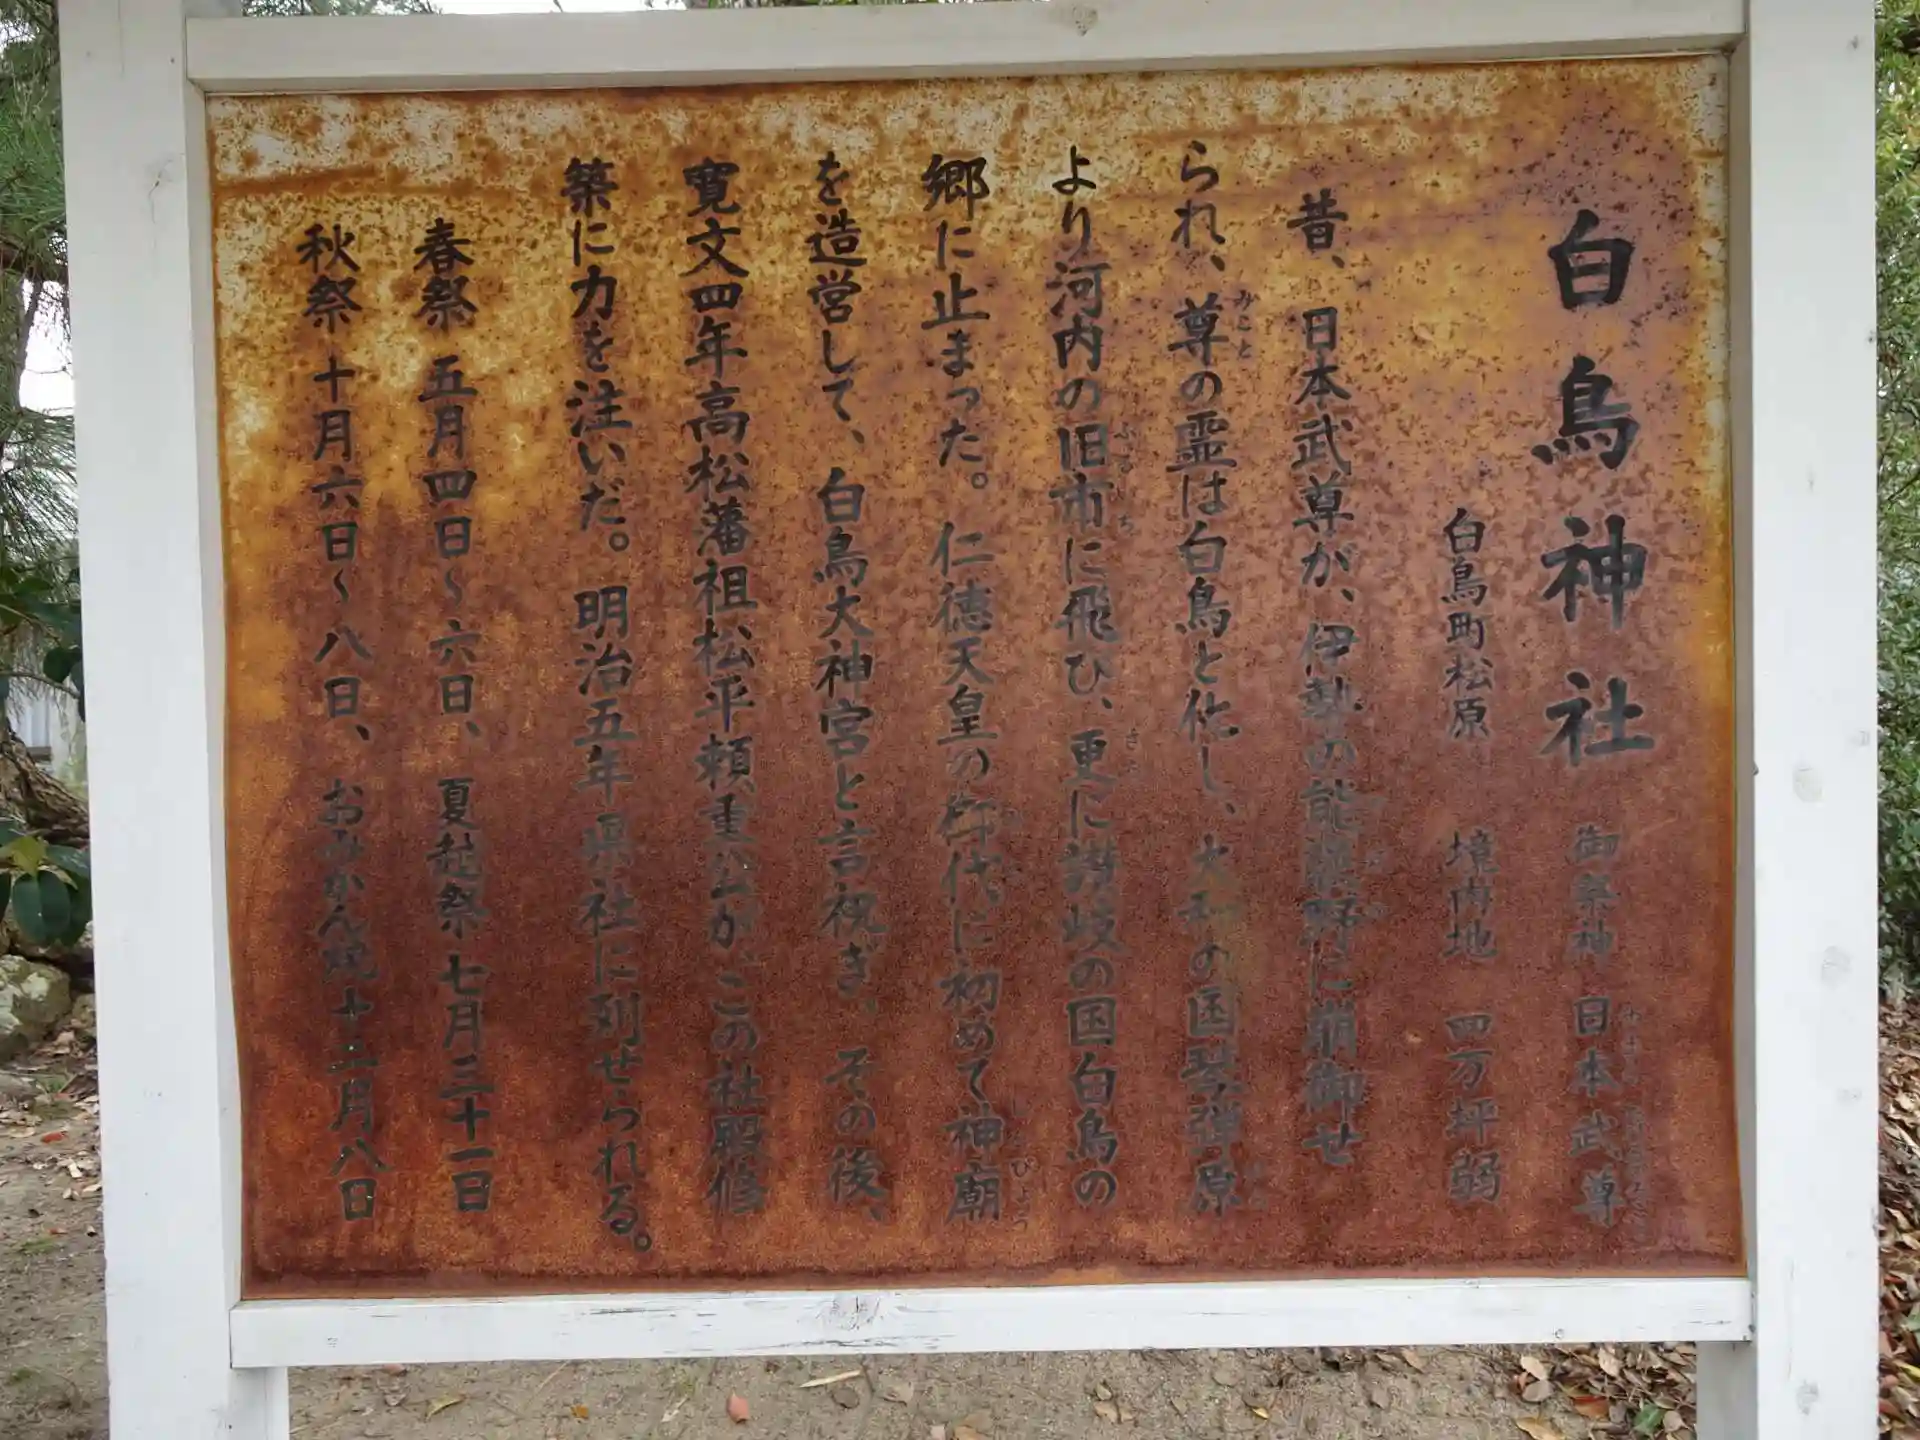 白鳥神社 御祭神 日本武尊
白鳥町松原 境内地 四万坪弱
昔、日本武尊が、伊勢の能褒野に崩御せ
られ、尊の霊は白鳥と化し、大和の国琴弾原
より河内の旧市に飛び、更に讃岐の国白鳥の
郷に止まった。仁徳天皇の御代に初めて神廟
を造営して、白鳥大神宮と言祝ぎ、その後、
寛文四年高松藩祖松平頼重公が、この社殿修
築に力を注いだ。明治五年県社に列せられる。
春祭 五月四日〜六日、 夏越祭 七月三十一日
秋祭 十月六日〜八日、 おみかん焼 十二月八日